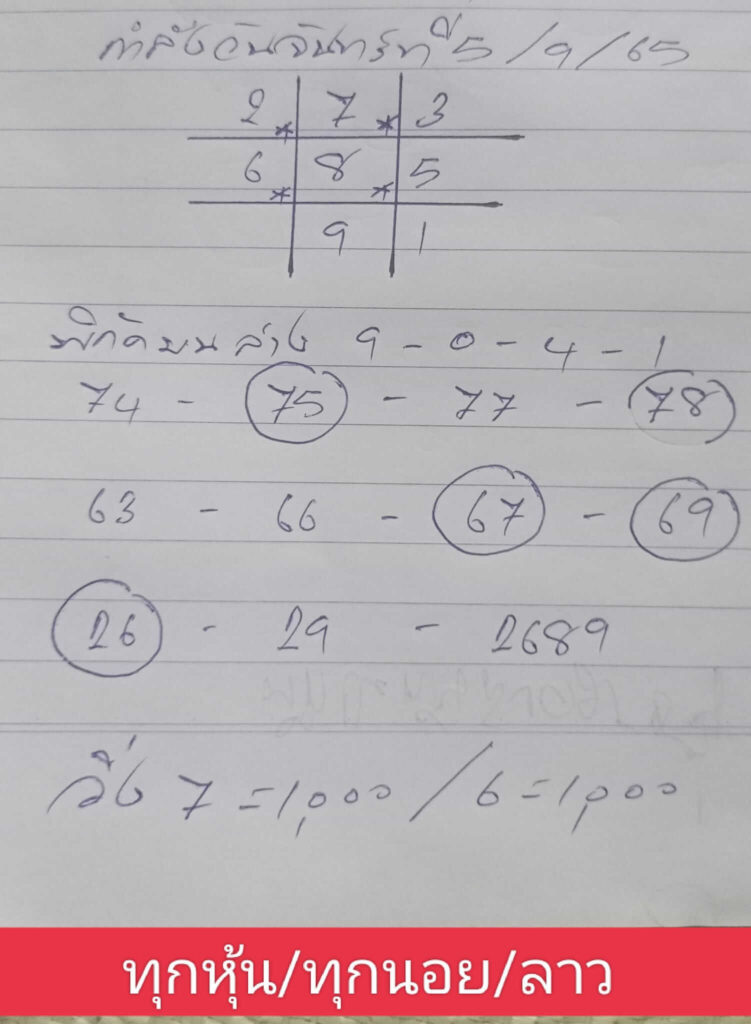 กำลังวันจันทร์ที่ 5/9/65
2 * 7 * 3
6 * 8 * 5
9 1
พิกัดบนล่าง 9-0-4-1
74 - 75 - 77 - 78
63 - 66 - 67 - 69
26 - 29 - 2689
วิ่ง 7 = 1,000 / 6 = 1,000
ทุกหุ้น/ทุกนอย/ลาว